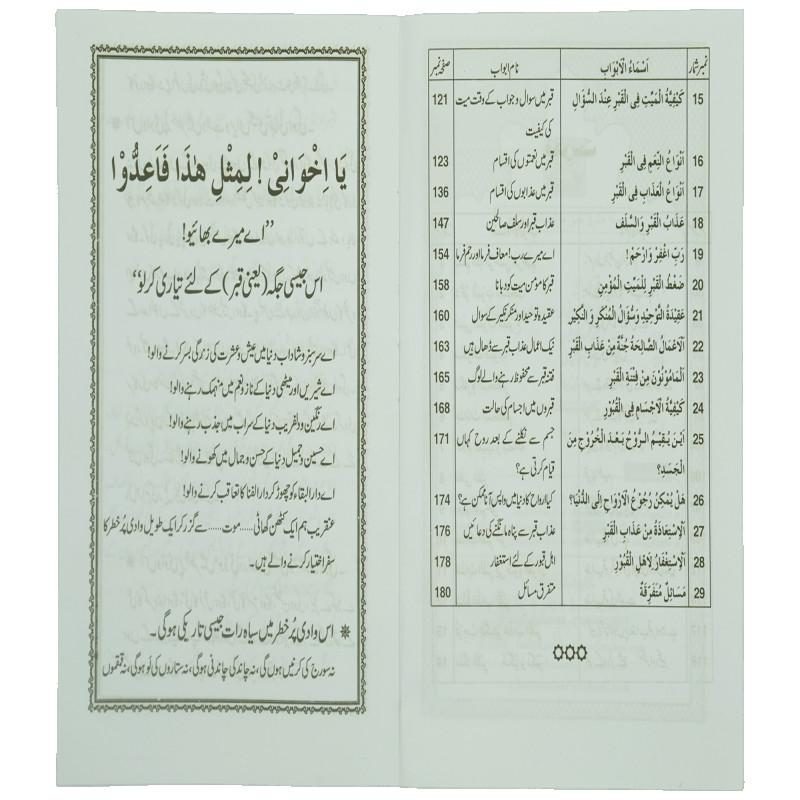 نمبر شمار اَسْمَاءُ الْاَبْوَابِ نام ابواب صفحہ نمبر
15 كَيْفِيَّةُ الْمَيِّتِ فِى الْقَبْرِ عِنْدَ السُّؤَالِ قبر میں سوال و جواب کے وقت میت 121
کی کیفیت
16 اَنْوَاعُ النِّعَمِ فِى الْقَبْرِ قبر میں نعمتوں کی اقسام 123
17 اَنْوَاعُ الْعَذَابِ فِى الْقَبْرِ قبر میں عذابوں کی اقسام 136
18 عَذَابُ الْقَبْرِ وَ السَّلَفِ عذاب قبر اور سلف صالحین 147
19 رَبِّ اغْفِرْ وَ ارْحَمْ! اے میرے رب! معاف فرما اور رحم فرما 154
20 ضَغْطُ الْقَبْرِ لِلْمَيِّتِ الْمُؤْمِنِ قبر کا مومن میت کو دبانا 158
21 عَقِيْدَةُ التَّوْحِيْدِ وَ سُؤَالُ الْمُنْكَرِ وَ النَّكِيْرِ عقیدہ توحید اور منکر نکیر کے سوال 160
22 اَلْاَعْمَالُ الصَّالِحَةُ جُنَّةٌ مِنْ عَذَابِ الْقَبْرِ نیک اعمال عذاب قبر سے ڈھال ہیں 163
23 اَلْمَأْمُوْنُوْنَ مِنْ فِتْنَةِ الْقَبْرِ فتنہ قبر سے محفوظ رہنے والے لوگ 165
24 كَيْفِيَّةُ الْاَجْسَامِ فِى الْقُبُوْرِ قبروں میں اجسام کی حالت 168
25 اَيْنَ يُقِيْمُ الرُّوْحُ بَعْدَ الْخُرُوْجِ مِنَ جسم سے نکلنے کے بعد روح کہاں 171
الْجَسَدِ؟ قیام کرتی ہے؟
26 هَلْ يُمْكِنُ رُجُوْعُ الْاَرْوَاحِ اِلَى الدُّنْيَا؟ کیا رواح کا دنیا میں واپس آنا ممکن ہے؟ 174
27 اَلْاِسْتِعَاذَةُ مِنْ عَذَابِ الْقَبْرِ عذاب قبر سے پناہ مانگنے کی دعائیں 176
28 اَلْاِسْتِغْفَارُ لِاَهْلِ الْقُبُوْرِ اہل قبور کے لئے استغفار 178
29 مَسَائِلُ مُتَفَرِّقَةٌ متفرق مسائل 180
يَا اِخْوَانِىْ! لِمِثْلِ هٰذَا فَاَعِدُّوْا
”اے میرے بھائیو!
اس جیسی جگہ (یعنی قبر) کے لئے تیاری کرلو“
اے سرسبز و شاداب دنیا میں عیش و عشرت کی زندگی بسر کرنے والو!
اے شیریں اور میٹھی دنیا کے ناز و نعم میں منہمک رہنے والو!
اے رنگین و دلفریب دنیا کے سراب میں جذب رہنے والو!
اے حسین و جمیل دنیا کے حسن و جمال میں کھونے والو!
اے دار البقاء کو چھوڑ کر دار الفنا کا تعاقب کرنے والو!
عنقریب ہم ایک کٹھن گھاٹی ...... موت ...... سے گزر کر ایک طویل وادی پُر خطر کا
سفر اختیار کرنے والے ہیں۔
❋ اس وادی پُر خطر میں سیاہ رات جیسی تاریکی ہوگی۔
نہ سورج کی کرنیں ہوں گی، نہ چاند کی چاندنی ہوگی، نہ ستاروں کی لَو ہوگی، نہ قمقموں